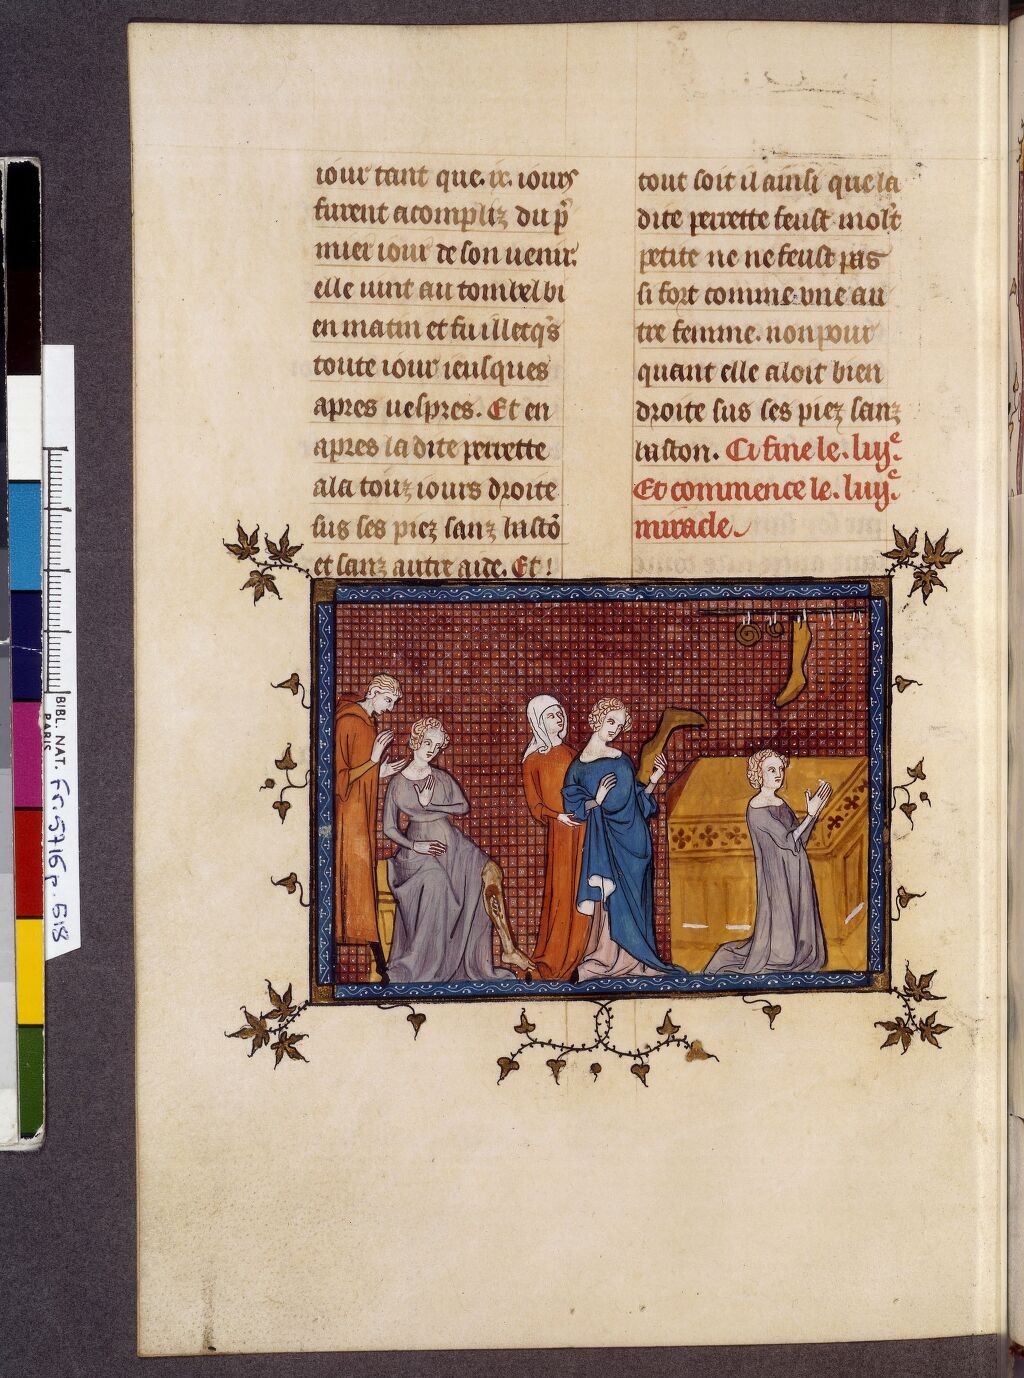 iour tant que .ix. iours
furent acompliz du p̄
mier iour de son uenir.
elle uint au tombel bi
en matin et fu illecq̄s
toute iour ieusques
apres uespres. Et en
apres la dite perrette
ala touz iours droite
sus ses piez sanz bastō
et sanz autre aide. Et
tout soit il ainsi que la
dite perrette feust molt
petite ne ne feust pas
si fort comme vne au
tre femme. non pour
quant elle aloit bien
droite sus ses piez sanz
baston. Ci fine le .liij.e
Et commence le .liiij.e
miracle
BIBL. NAT.
PARIS
Fr. 5716 p. 518